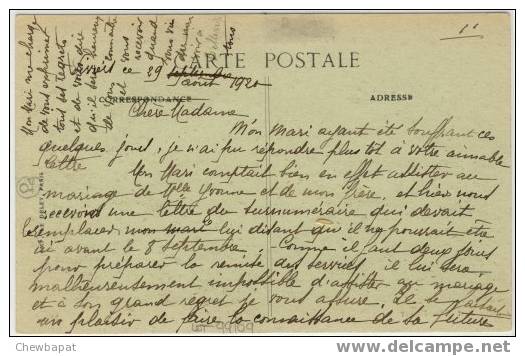 1"
CARTE POSTALE
ce 29 Septembre
août 1920
CORRESPONDANCE
ADRESSE
Chère Madame
Mon Mari ayant été souffrant ces
quelques jours, je n'ai pu répondre plus tôt à votre aimable
lettre
Mon Mari comptait bien en effet assister au
mariage de Melle Yvonne et de mon frère, et hier nous
recevons une lettre du surnuméraire qui devait
le remplacer mon mari lui disant qu'il ne pourrait être
ici avant le 8 septembre. Comme il faut deux jours
pour préparer la remise des services, il lui sera
malheureusement impossible d'assister au mariage
et à son grand regret je vous assure. Il se faisait
un plaisir de faire la connaissance de sa future
Mon Mari me charge
de vous exprimer
tous ses regrets
et de vous dire
qu'il sera heureux
de vous connaître
et vous recevoir
quand
vous
tous
LOT 99109
Chewbapat
delcampe.net